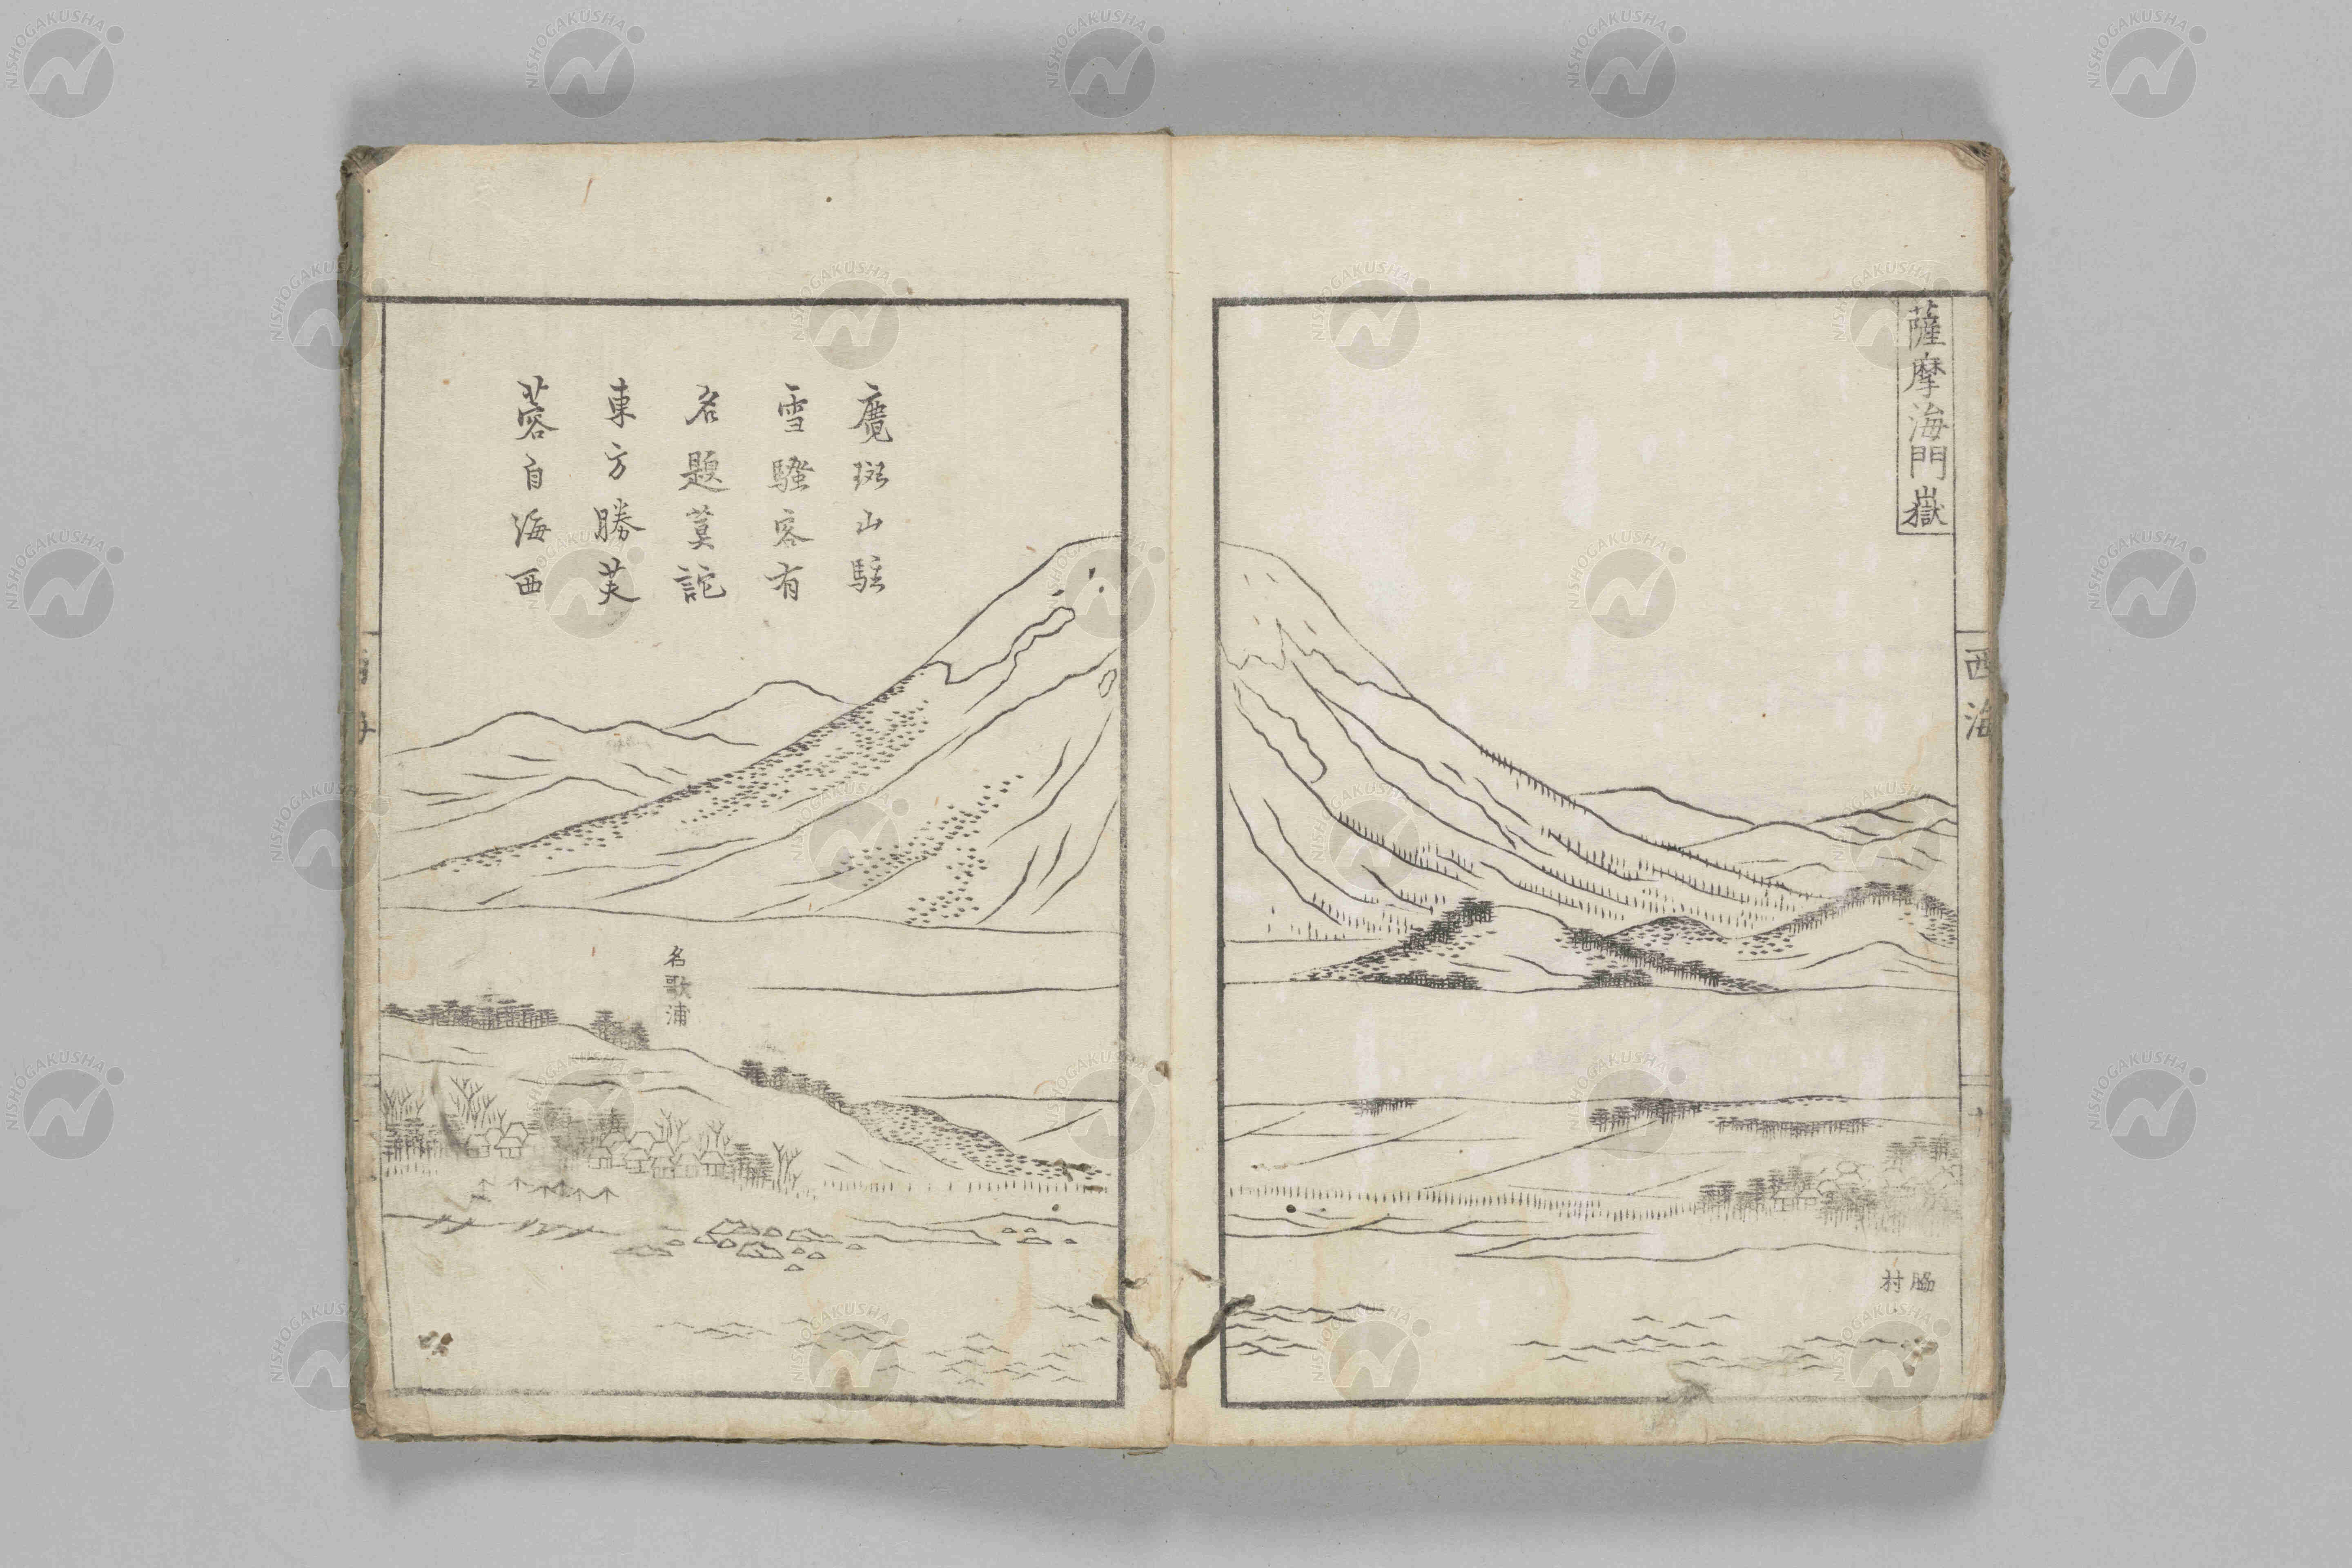 薩摩海門嶽
西海
脇村
魔斑山駐
雪騷客有
名題莫詑
東方勝芙
蓉自海西
名歌浦
NISHOGAKUSHA